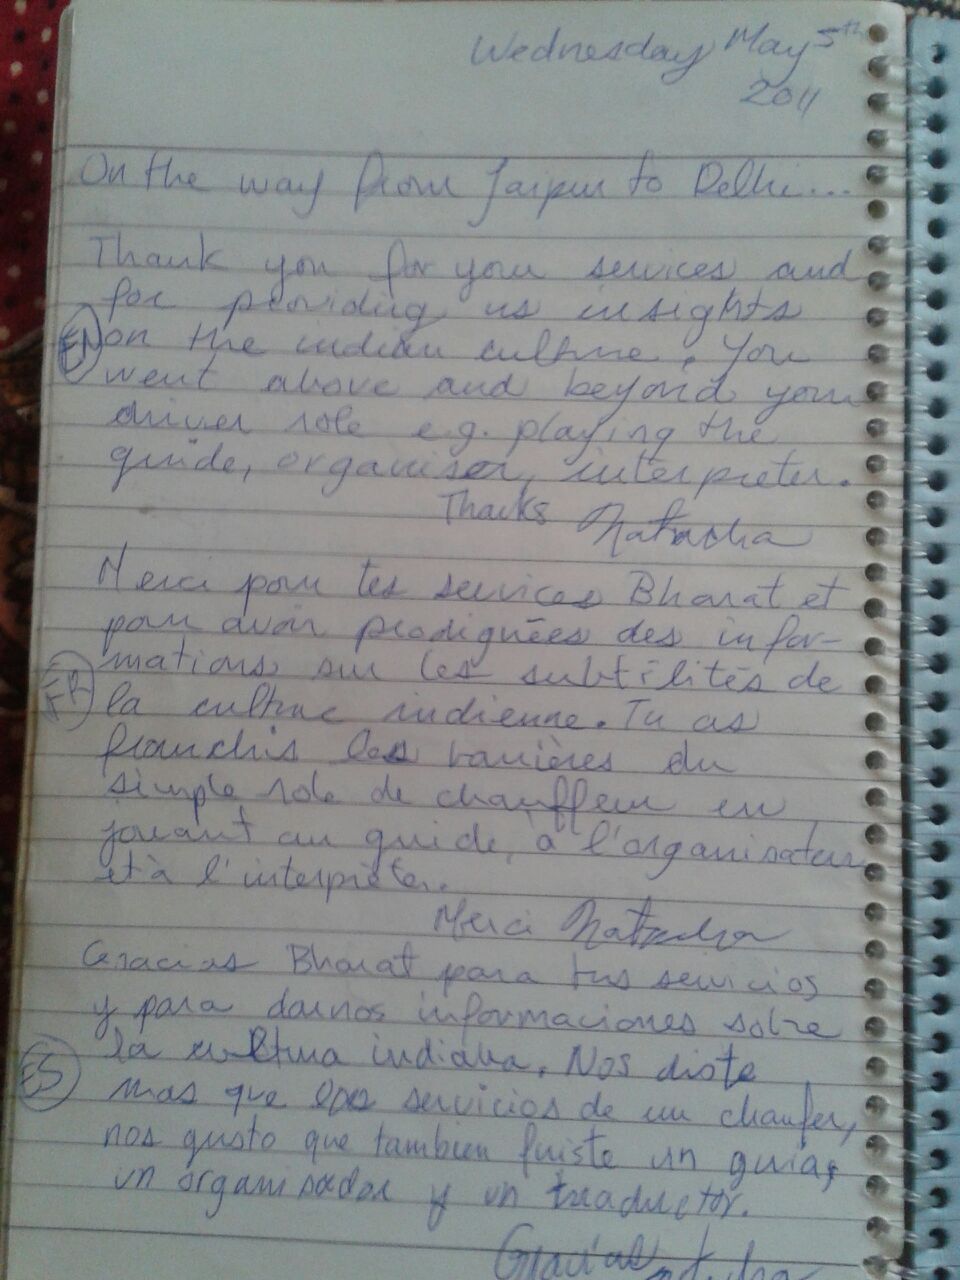 Wednesday May 5th
2011
On the way from Jaipur to Delhi...
Thank you for your services and
for providing us insights
EN on the indian culture. You
went above and beyond your
driver role e.g. playing the
guide, organiser, interpreter.
Thanks Natacha
Merci pour tes services Bharat et
pour avoir prodiguées des infor-
mations sur les subtilités de
FR la culture indienne. Tu as
franchis les barrières du
simple role de chauffeur en
jouant au guide, à l'organisateur
et à l'interprèter.
Merci Natacha
Gracias Bharat para tus servicios
y para darnos informaciones sobre
la cultura indiana. Nos diste
ES mas que los servicios de un chaufer,
nos gusto que tambien fuiste un guia,
un organisador y un traductor.
Gracias